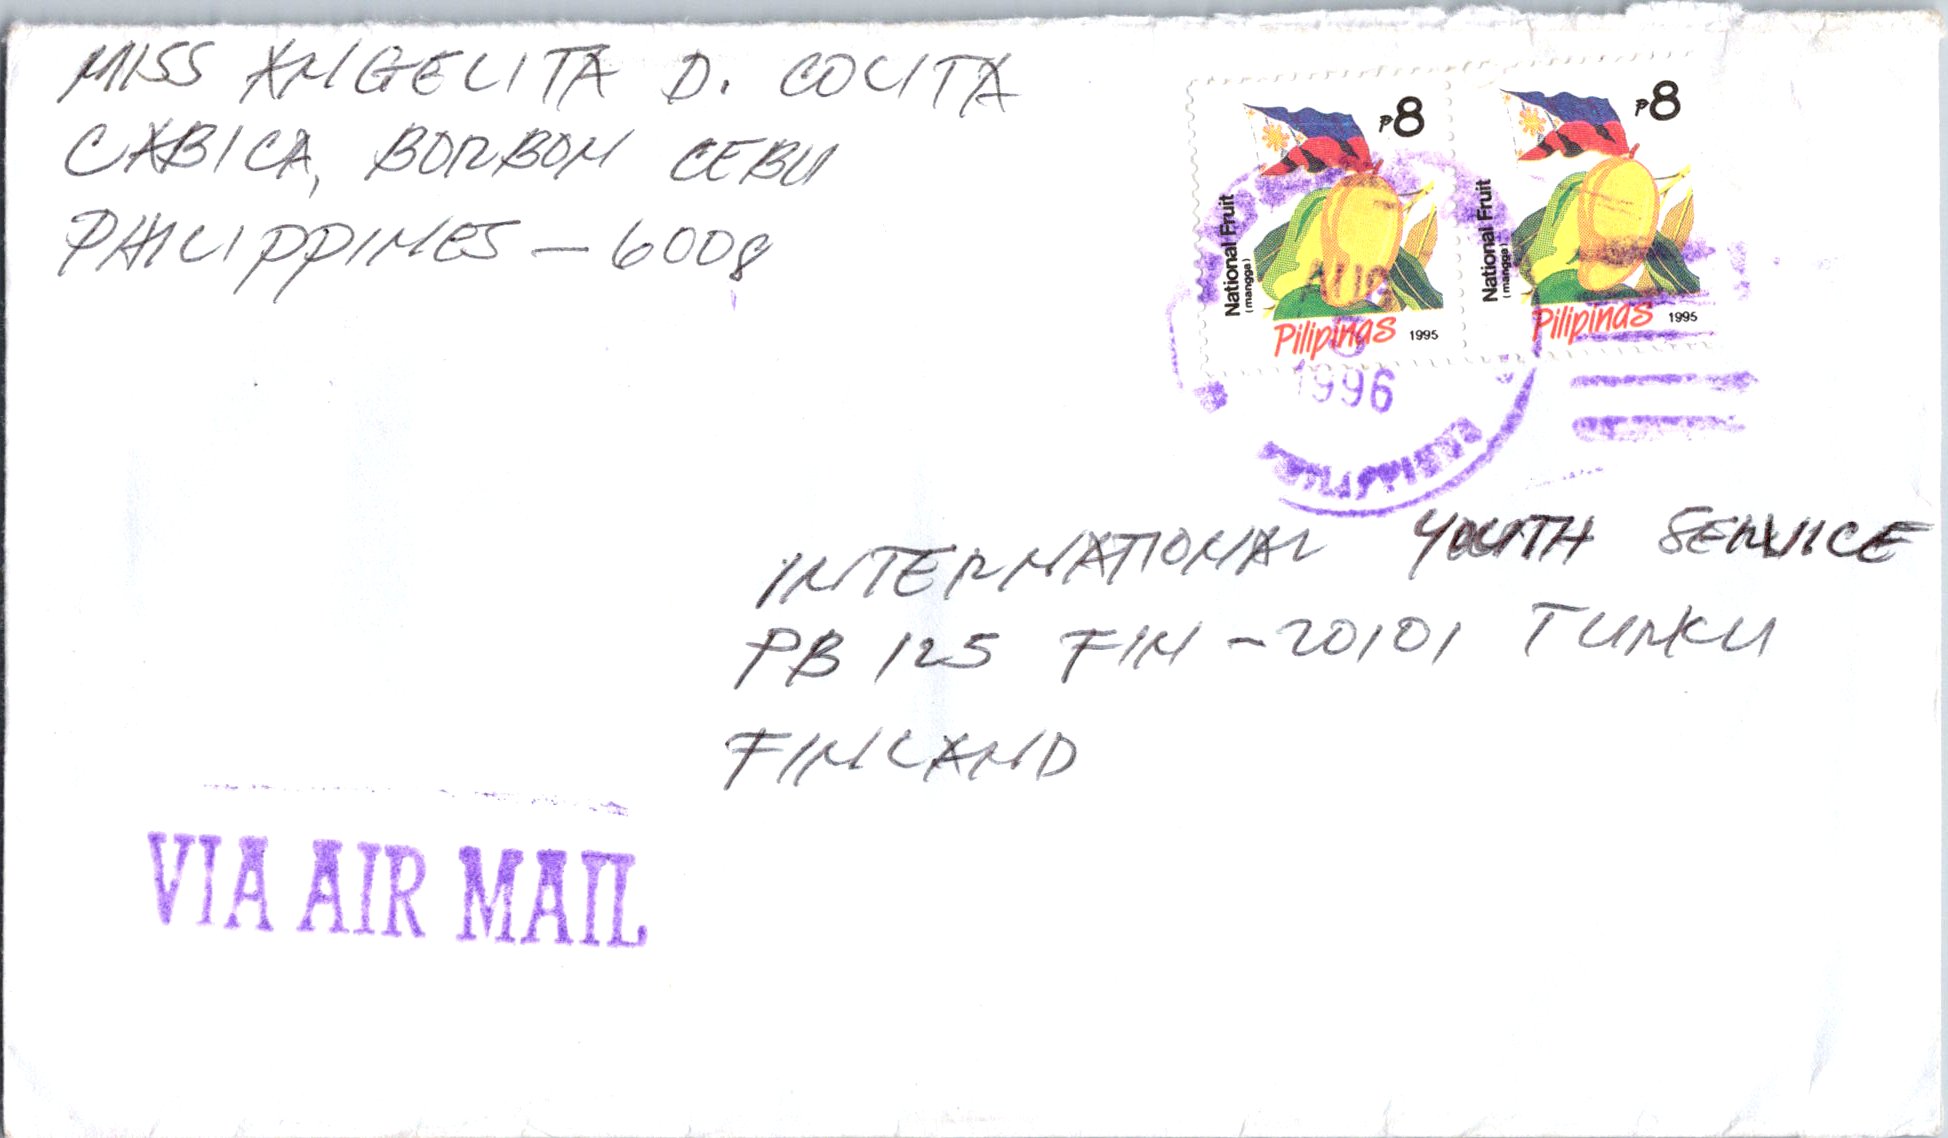 MISS ANGELITA D. COLITA
CABICA, BORBON CEBU
PHILIPPINES – 6008
₱8
National Fruit
(mangga)
Pilipinas 1995
₱8
National Fruit
(mangga)
Pilipinas 1995
AUG
1996
INTERNATIONAL YOUTH SERVICE
PB 125 FIN – 20101 TURKU
FINLAND
VIA AIR MAIL